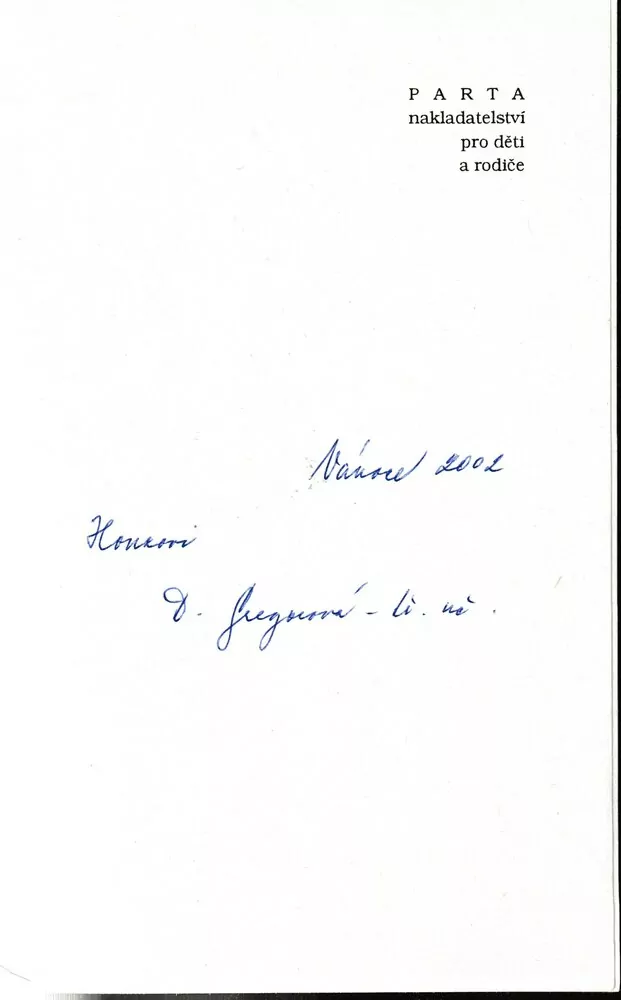 P A R T A
nakladatelství
pro děti
a rodiče
Vánoce 2002
Honzovi
D. Gregorová - tř. uč.